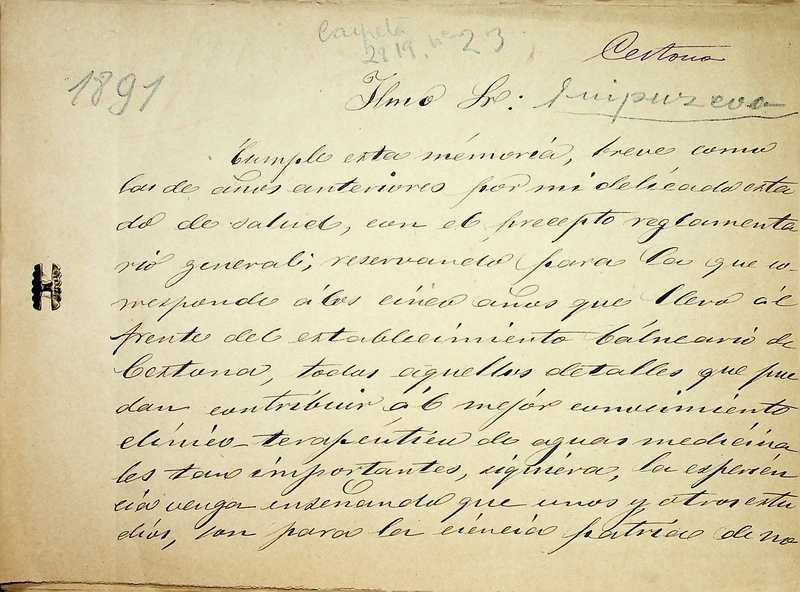 Carpeta
2919. nº 23
Cestona
1891
Ilmo Sr: Guipuzcoa
Cumple esta memoria, breve como
las de años anteriores por mi delicado esta
do de salud, con el precepto reglamenta
rio general; reservando para la que co-
rresponde á los cinco años que llevo al
frente del establecimiento balneario de
Cestona, todos aquellos detalles que pue
dan contribuir ál mejor conocimiento
clínico-terapéutico de aguas medicina
les tan importantes, siquiera, la experien
cia venga enseñando que unos y otros estu
dios, son para la ciencia pátria de no